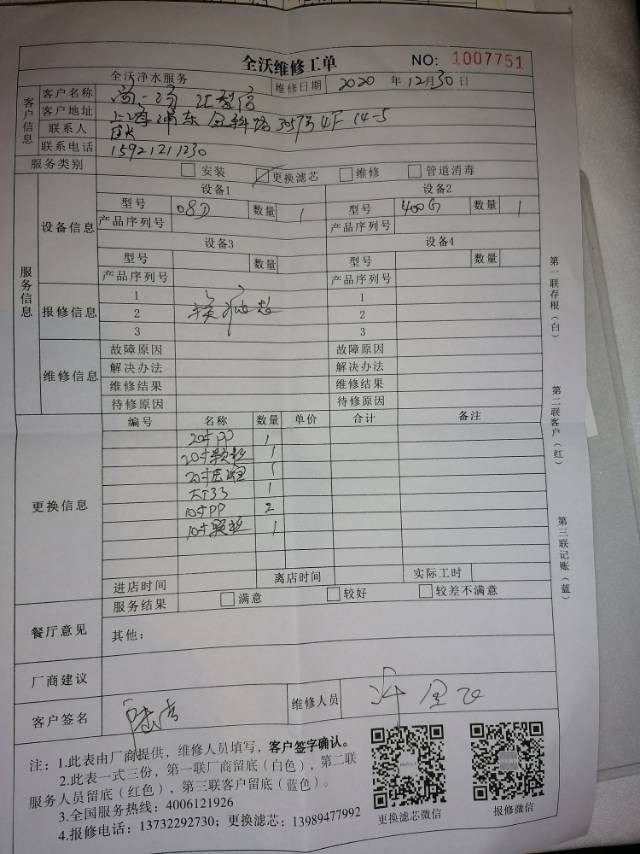 全沃维修工单 NO: 1007751
全沃净水服务 维修日期 2020 年 12月 30 日
客户信息
客户名称
客户地址 上海浦东金科路3057号4F 14-5
联系人
联系电话 15921211230
服务类别 安装 更换滤芯 维修 管道消毒
服务信息
设备信息
设备1 设备2
型号 08D 数量 1 型号 400G 数量 1
产品序列号 产品序列号
设备3 设备4
型号 数量 型号 数量
产品序列号 产品序列号
报修信息
1 1
2 换滤芯 2
3 3
维修信息
故障原因 故障原因
解决办法 解决办法
维修结果 维修结果
待修原因 待修原因
更换信息
编号 名称 数量 单价 合计 备注
20寸PP 1
20寸颗粒 1
20寸 1
1
10寸PP 2
10寸颗粒 1
进店时间 离店时间 实际工时
服务结果 满意 较好 较差不满意
餐厅意见 其他：
厂商建议
客户签名 维修人员
注：1.此表由厂商提供，维修人员填写，客户签字确认。
2.此表一式三份，第一联厂商留底（白色），第二联
服务人员留底（红色），第三联客户留底（蓝色）。
3.全国服务热线：4006121926
4.报修电话：13732292730；更换滤芯：13989477992
更换滤芯微信 报修微信
第一联存根（白）
第二联客户（红）
第三联记账（蓝）